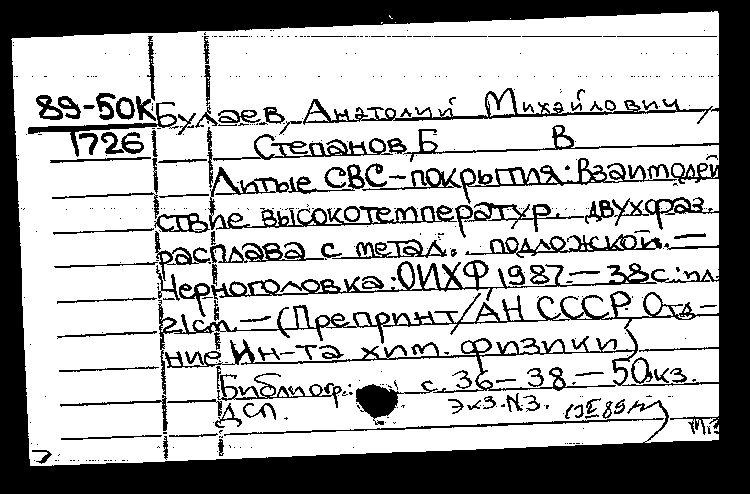 89-50К Булаев, Анатолий Михайлович,
1726 Степанов, Б В
Литые СВС-покрытия: Взаимодей
ствие высокотемператур. двухфаз.
расплава с метал. подложкой. —
Черноголовка: ОИХФ 1987. — 38с.: ил.
21см. — (Препринт/АН СССР. Отд-
ние Ин-та хим. физики)
Библиогр.: с. 36-38. — 50кз.
ДСП. Экз. N3.